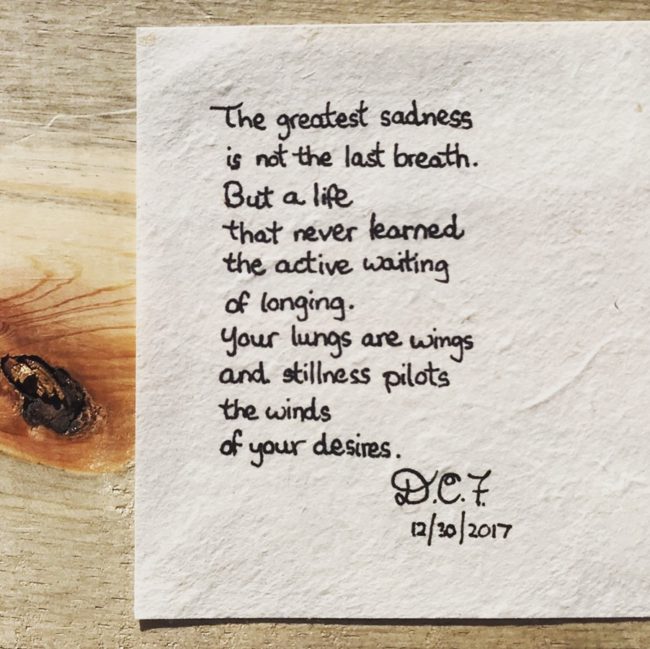 The greatest sadness
is not the last breath.
But a life
that never learned
the active waiting
of longing.
Your lungs are wings
and stillness pilots
the winds
of your desires.
D.C.F.
12/30/2017